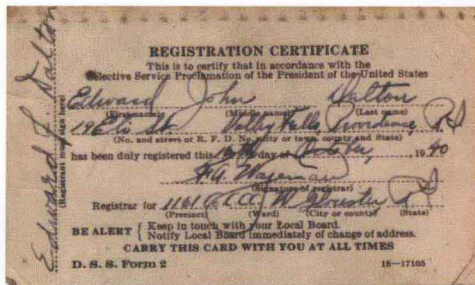 REGISTRATION CERTIFICATE
This is to certify that in accordance with the
Selective Service Proclamation of the President of the United States
Edward John Dalton
(First name) (Middle name) (Last name)
196 St. Valley Falls, Providence, R I
(No. and street or R. F. D. No., city or town, county and State)
has been duly registered this 16th day of October, 1940
(Signature of registrar)
Registrar for W. Gloucester R I
(Precinct) (Ward) (City or county) (State)
BE ALERT { Keep in touch with your Local Board.
Notify Local Board immediately of change of address.
CARRY THIS CARD WITH YOU AT ALL TIMES
D. S. S. Form 2 16—17105
Edward J. Dalton
(Registrant must sign here)